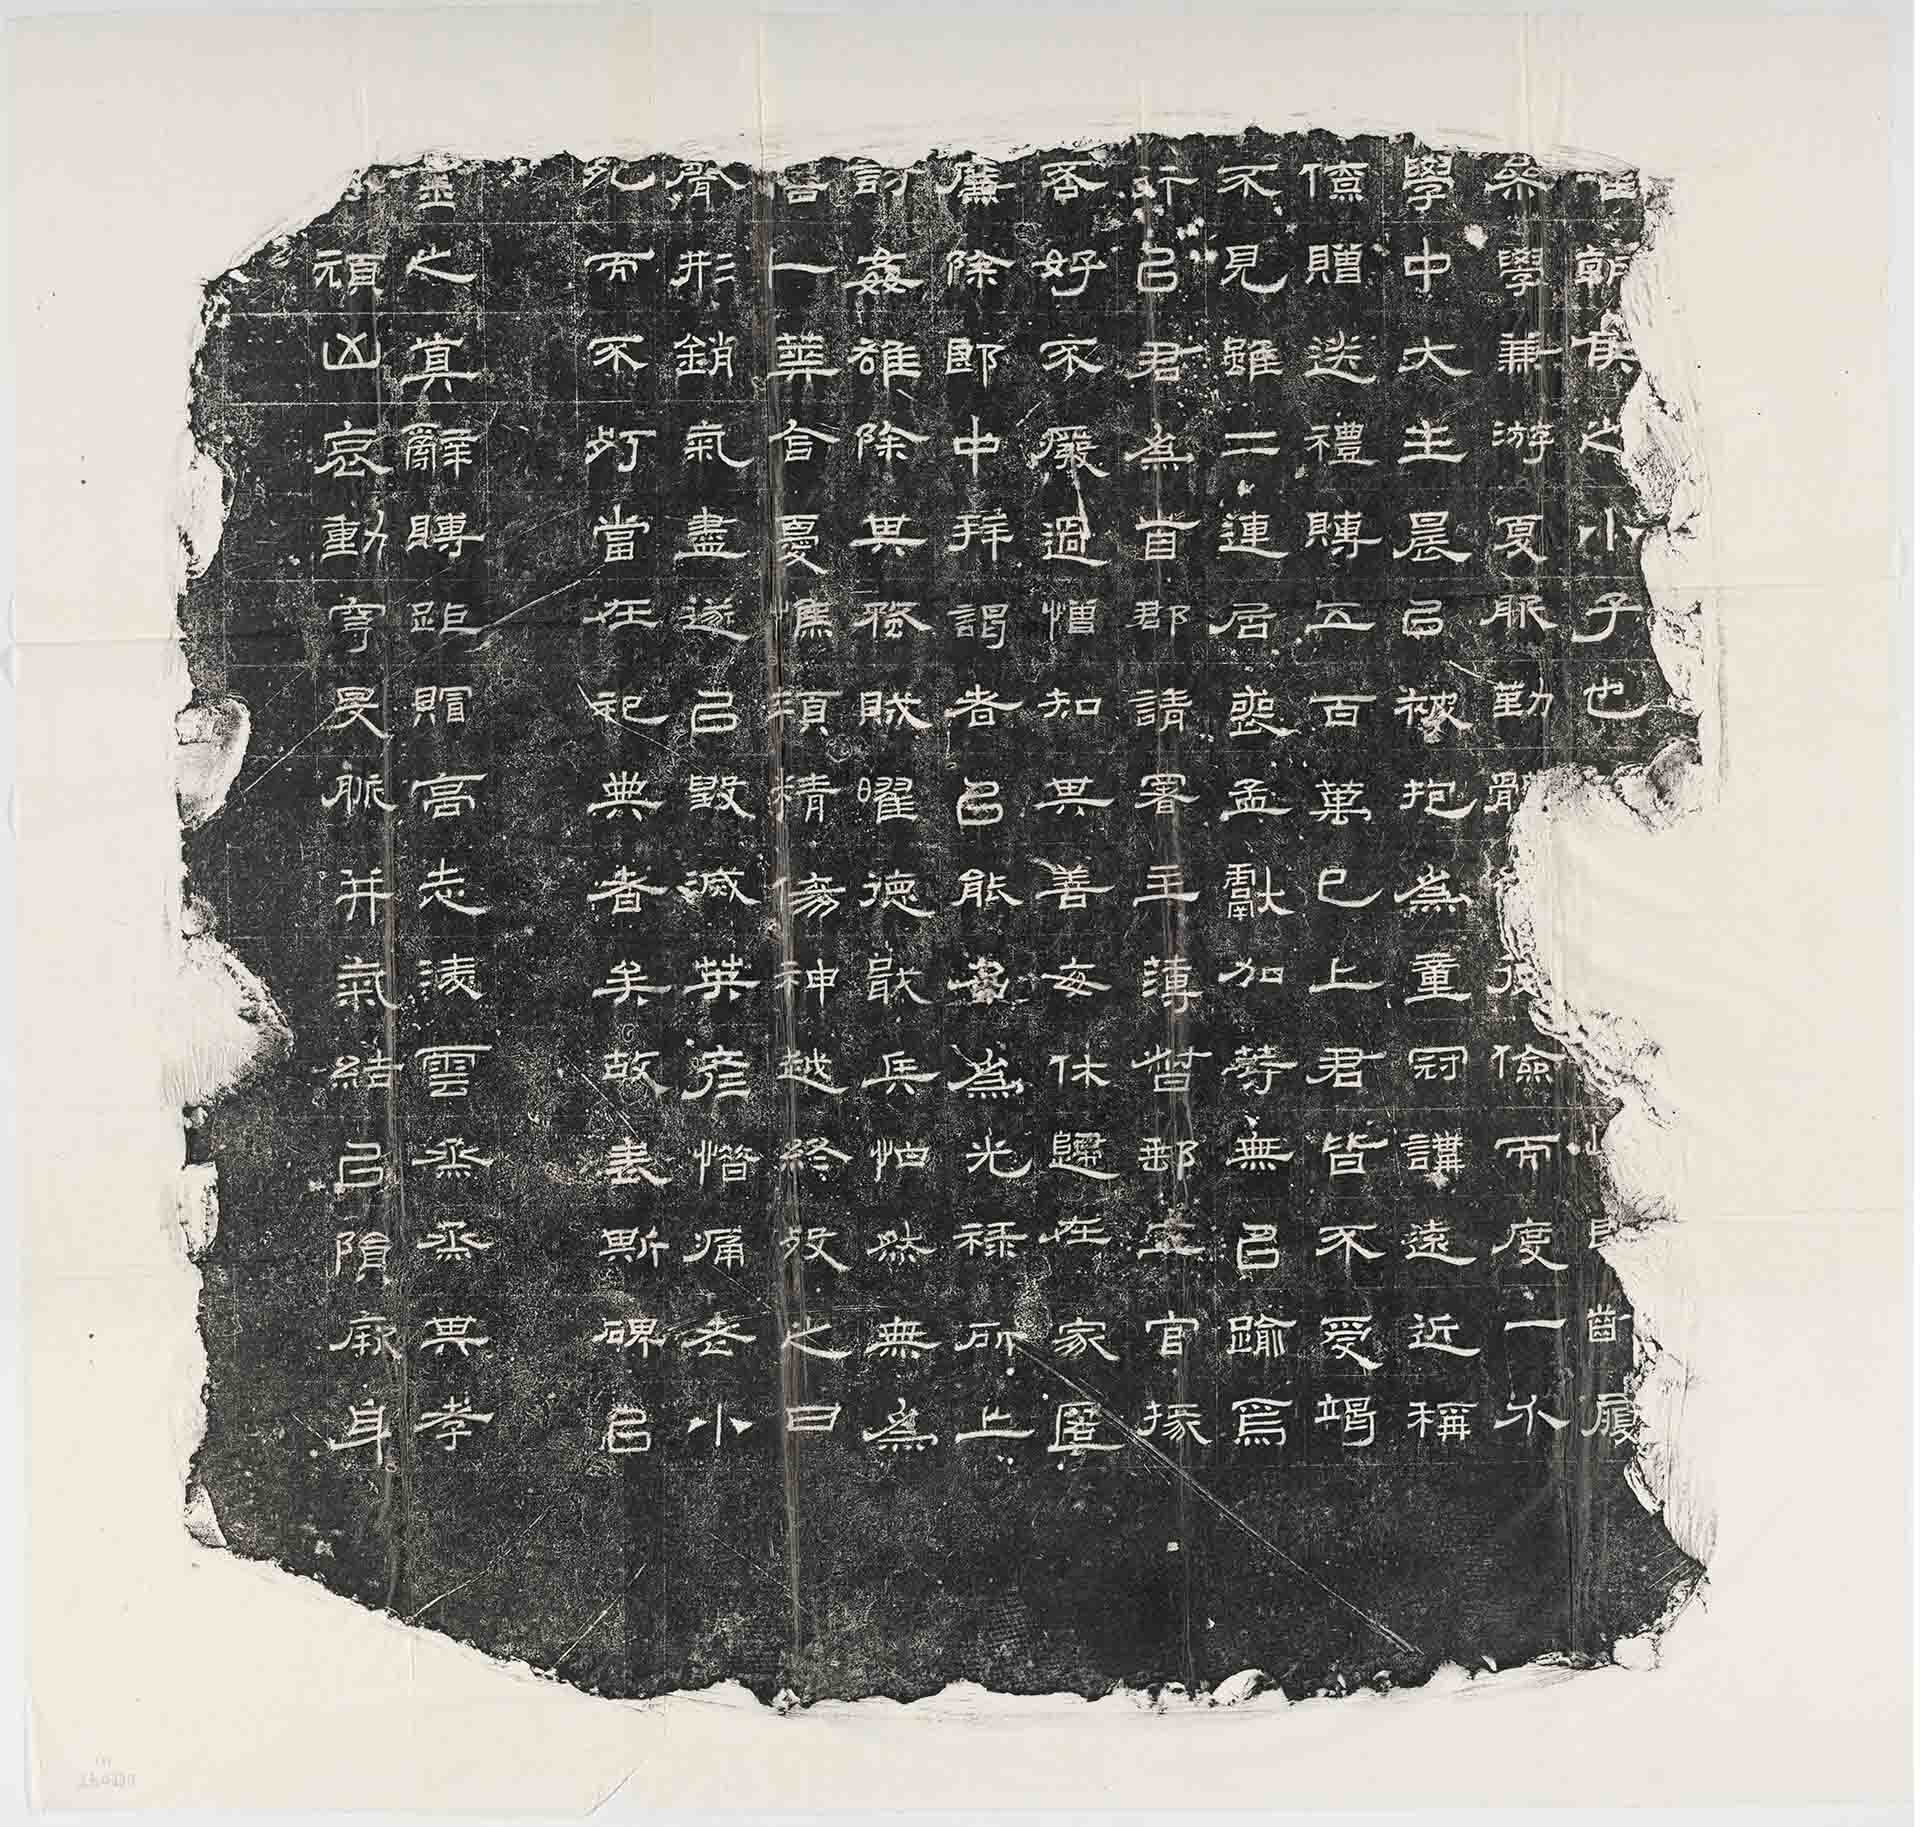 朝侯之小子也齒履
學兼游夏服勤體儉而度一介
學中大主晨以被抱為童冠講遠近稱
僚贈送禮賻五百萬已上君皆不受竭
不見雖二連居喪孟獻加等無以踰焉
行己君為首郡請署主薄督郵五官掾
否好不廢過憎知其善每休歸在家匿
廉除郎中拜謁者以能名為光祿所上
討姦雄除其蝥賊曜德戢兵怕然無為
一葬含憂憔顇精傷神越終歿之日
聲形銷氣盡遂以毀滅英彥惜痛老小
死而不朽當在祀典者矣故表斯碑以
靈之真辭聘距贈高志淩雲烝烝其孝
頑凶哀動穹旻脈并氣結以隕厥身